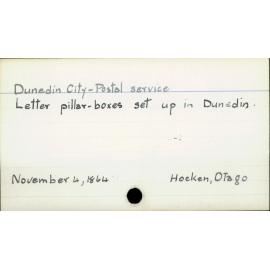 Dunedin City-Postal service
Letter pillar-boxes set up in Dunedin.
November 4, 1864 Hocken, Otago